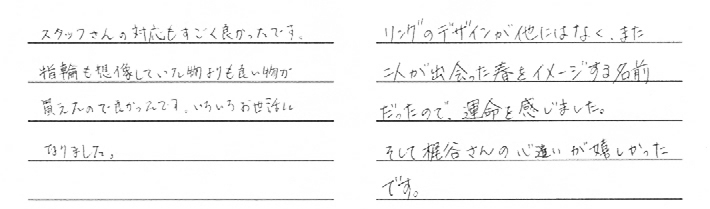 スタッフさんの対応もすごく良かったです。
指輪も想像していた物よりも良い物が
買えたので良かったです。いろいろお世話に
なりました。
リングのデザインが他にはなく、また
二人が出会った春をイメージする名前
だったので、運命を感じました。
そして梶谷さんの心遣いが嬉しかった
です。